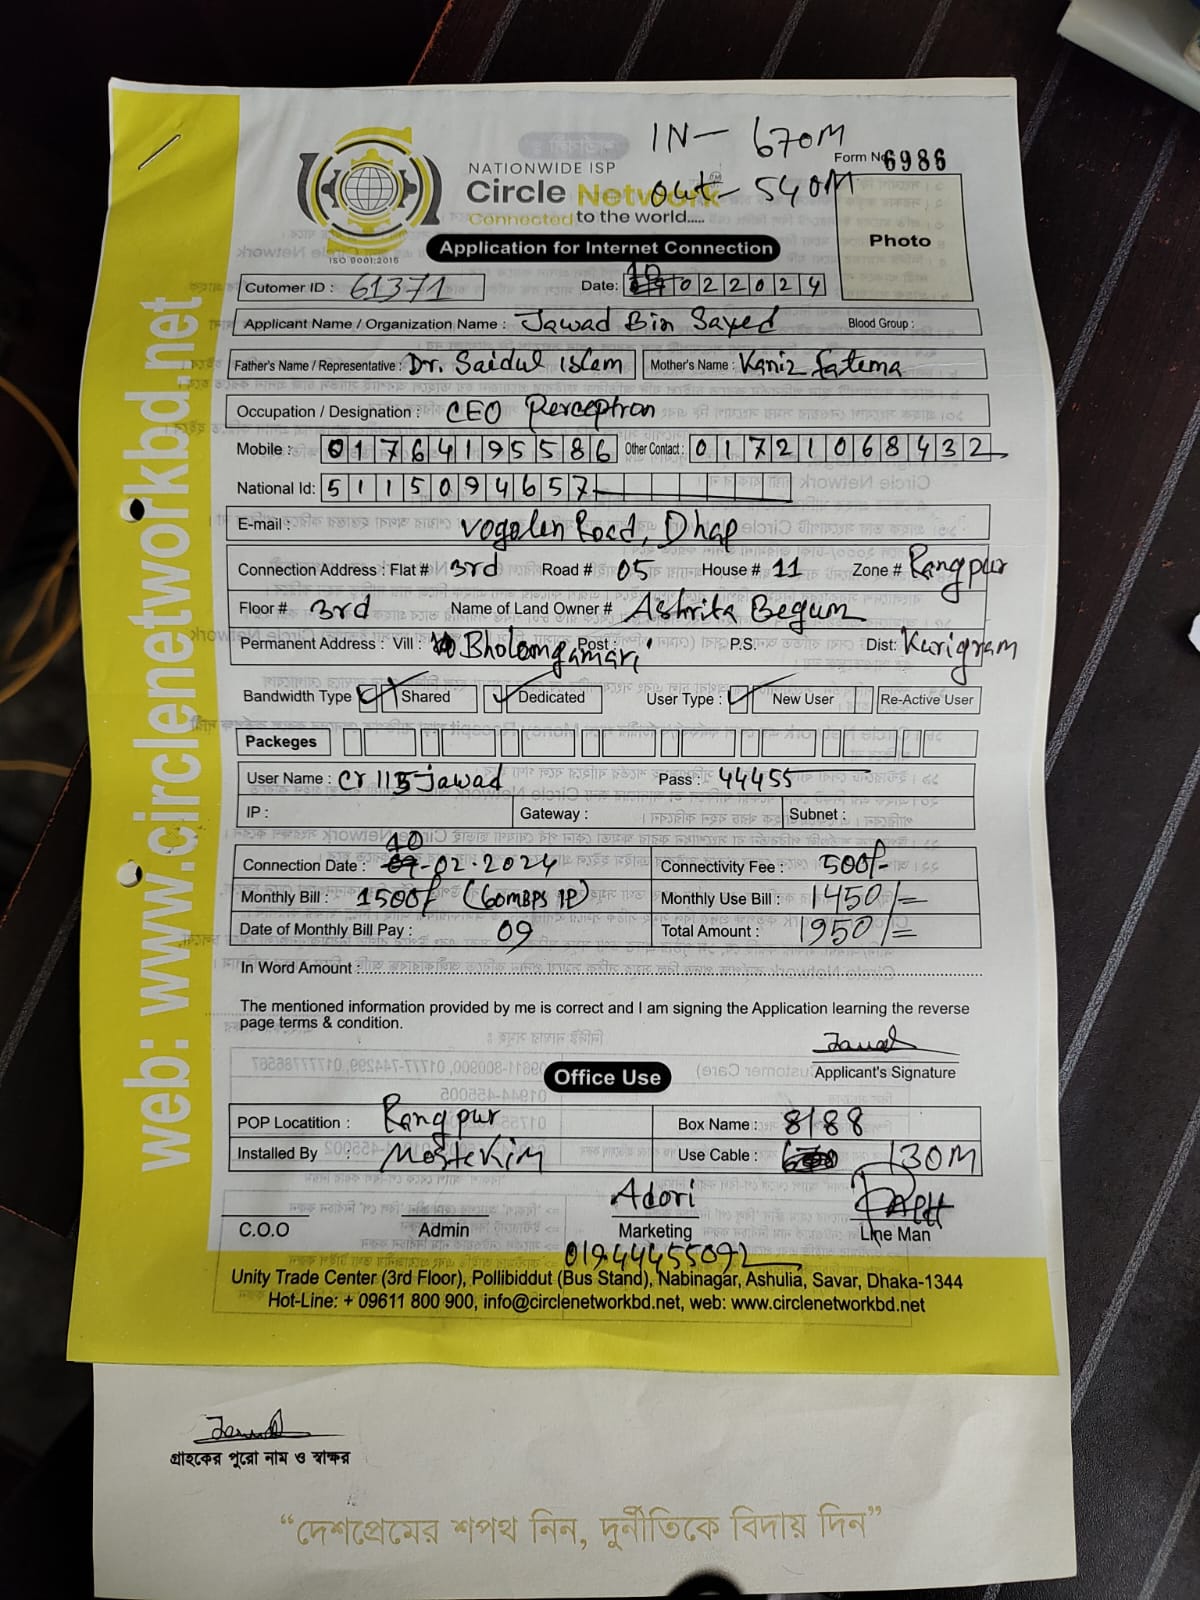 IN - 670M
NATIONWIDE ISP
Form No 6986
Circle Network
Out - 540M
Connected to the world.....
ISO 9001:2015
Application for Internet Connection
Photo
Cutomer ID : 61371
Date: 10 02 2024
Applicant Name / Organization Name : Jawad Bin Sayed Blood Group :
Father's Name / Representative : Dr. Saidul islam Mother's Name : Kaniz fatema
Occupation / Designation : CEO Perceptron
Mobile : 01764195586 Other Contact : 01721068432
National Id: 5115094657
E-mail :
Vogolen Road, Dhap
Connection Address : Flat # 3rd Road # 05 House # 11 Zone # Rangpur
Floor # 3rd Name of Land Owner # Ashrita Begum
Permanent Address : Vill : Bholomgamari Post : P.S. Dist: Kurigram
Bandwidth Type Shared Dedicated User Type : New User Re-Active User
Packeges
User Name : Cr113Jawad Pass : 44455
IP : Gateway : Subnet :
Connection Date : 10-02-2024 Connectivity Fee : 500/-
Monthly Bill : 1500/ (60MBPS IP) Monthly Use Bill : 1450/=
Date of Monthly Bill Pay : 09 Total Amount : 1950/=
In Word Amount :
The mentioned information provided by me is correct and I am signing the Application learning the reverse
page terms & condition.
Jawad
Applicant's Signature
Office Use
POP Locatition : Rangpur Box Name : 8/88
Installed By : Mostekim Use Cable : 130M
Adori
C.O.O Admin Marketing Line Man
01944455092
Unity Trade Center (3rd Floor), Pollibiddut (Bus Stand), Nabinagar, Ashulia, Savar, Dhaka-1344
Hot-Line: + 09611 800 900, info@circlenetworkbd.net, web: www.circlenetworkbd.net
web: www.circlenetworkbd.net
Jawad
গ্রাহকের পুরো নাম ও স্বাক্ষর
“দেশপ্রেমের শপথ নিন, দুর্নীতিকে বিদায় দিন”